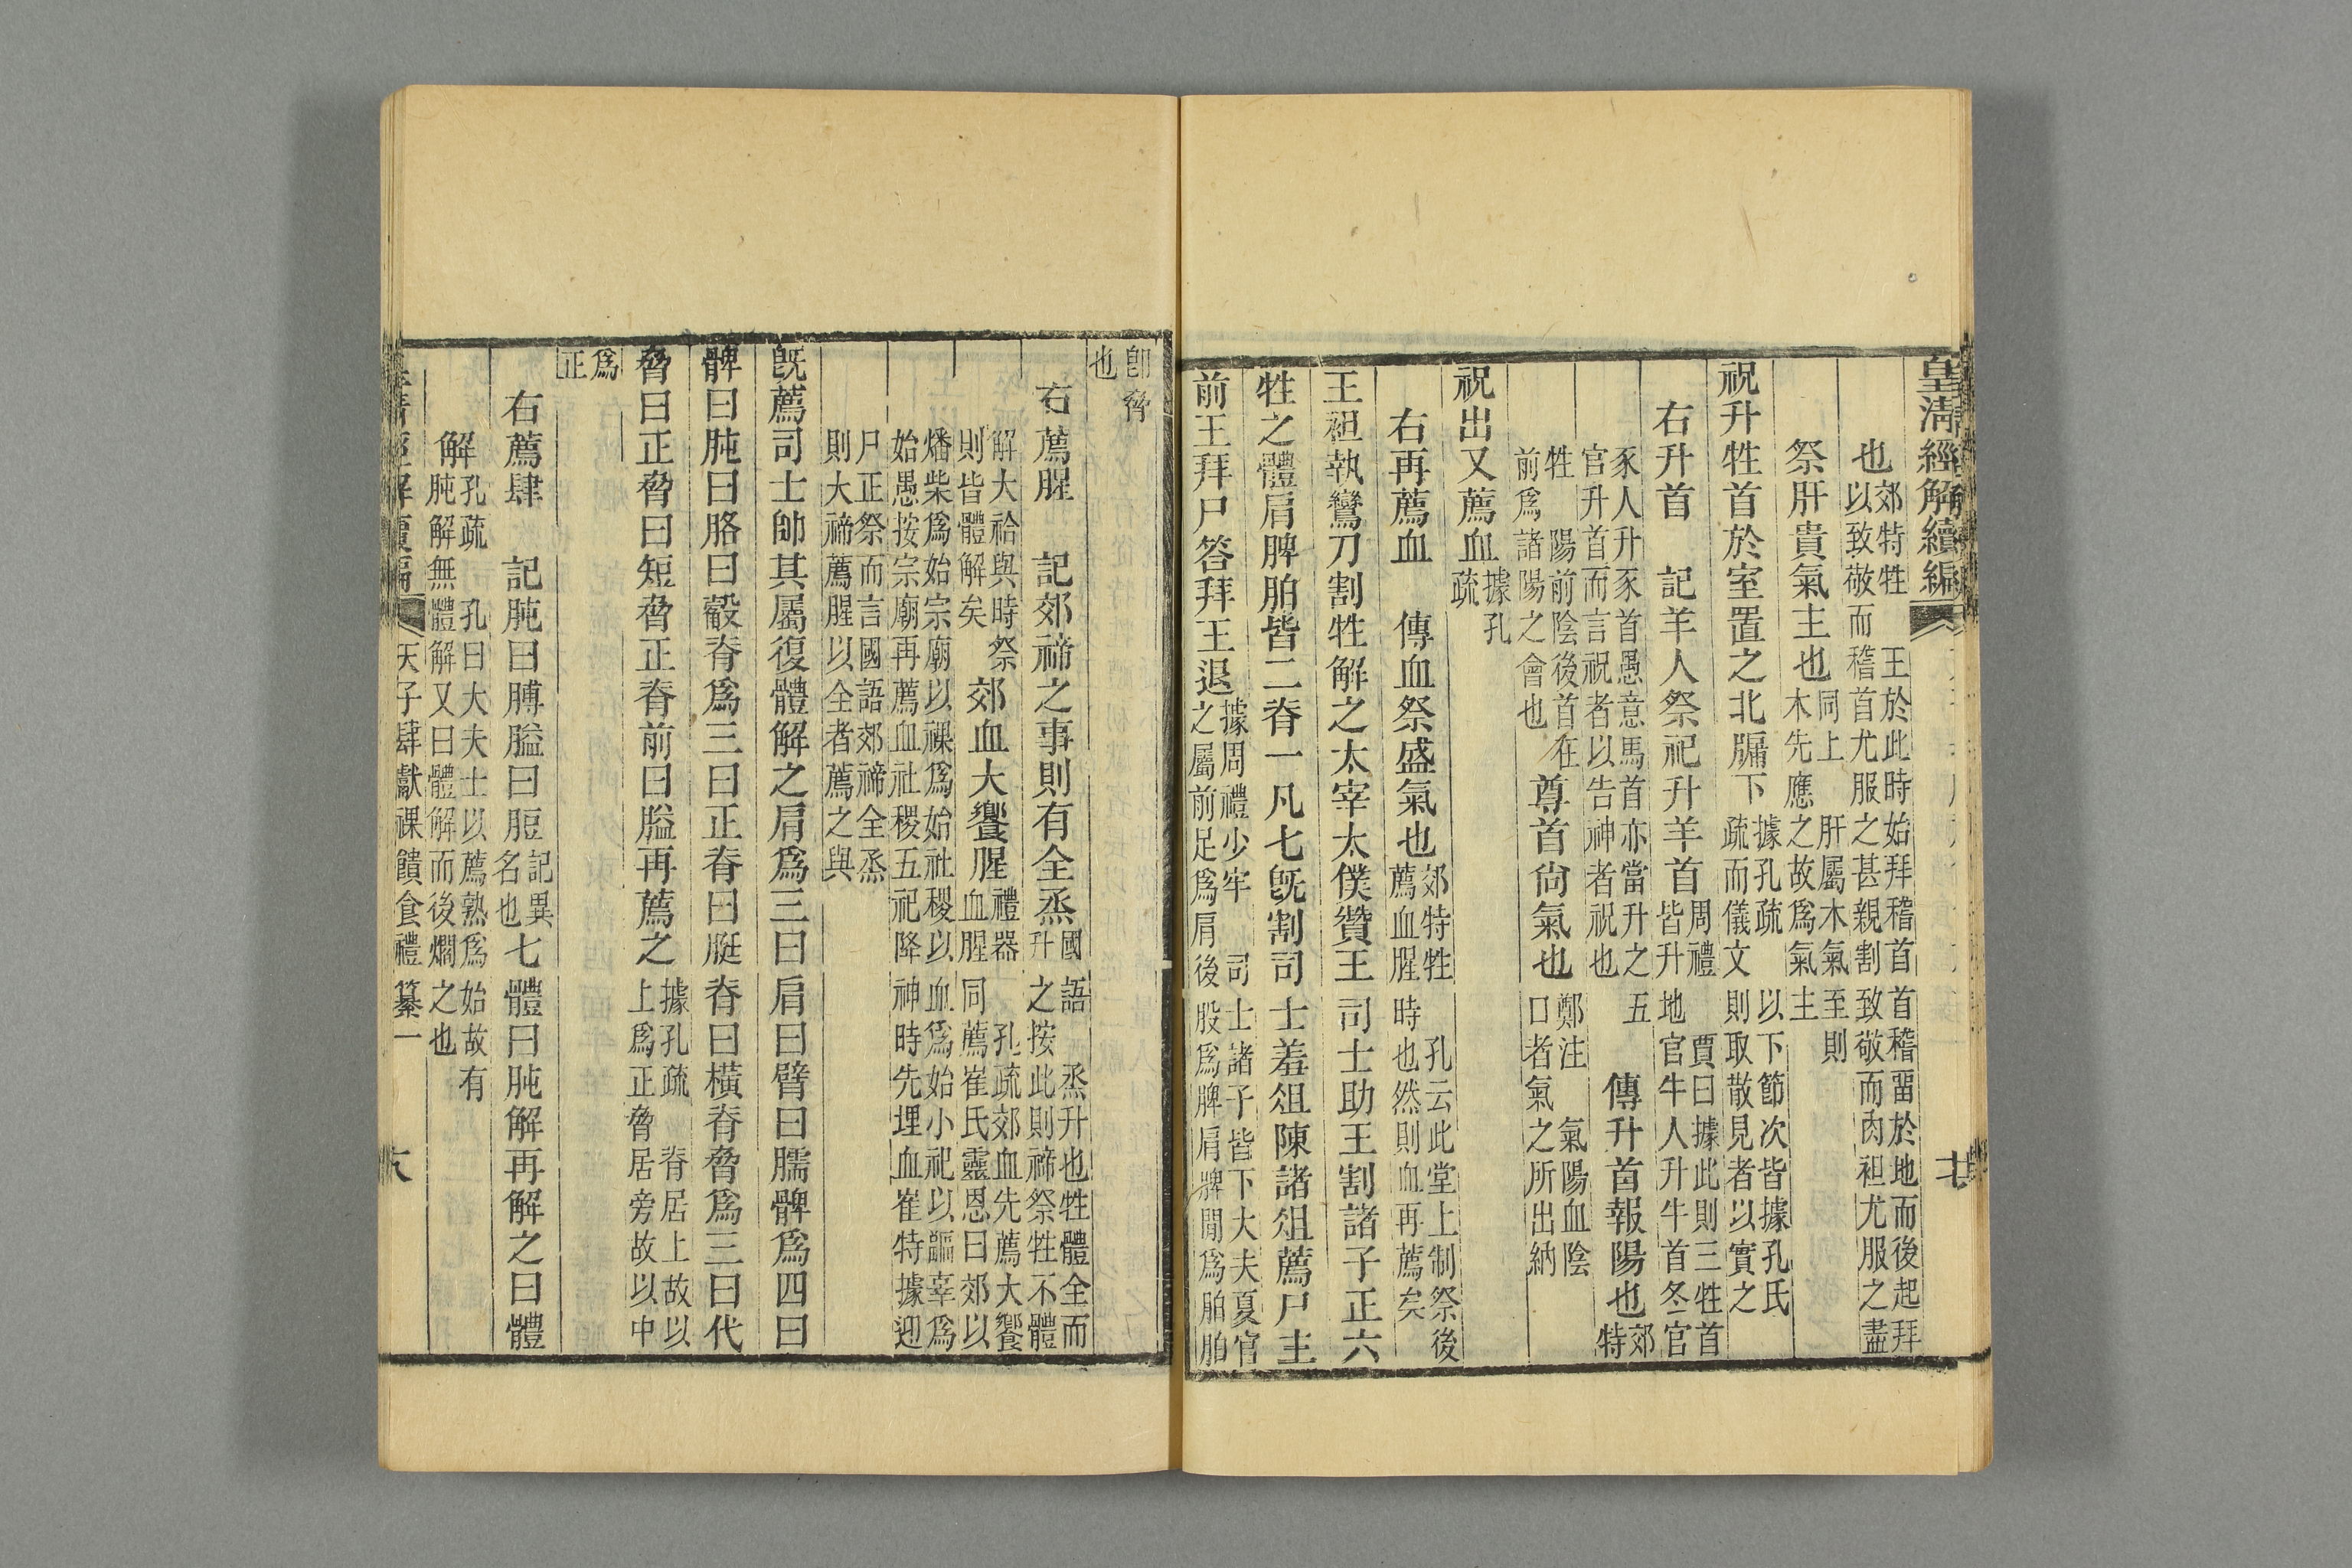 皇清經解續編
也郊特牲　王於此時始拜稽首首稽留於地而後起拜以致敬而稽首尤服之甚親割致敬而肉袒尤服之盡
祭肝貴氣主也同上　肝屬木氣至則木先應之故爲氣主
祝升牲首於室置之北牖下據孔疏　以下節次皆據孔氏疏而儀文則取散見者以實之
右升首　記羊人祭祀升羊首周禮　賈曰據此則三牲首皆升地官牛人升牛首冬官
豕人升豕首愚意馬首亦當升之五官升首而言祝者以告神者祝也　傳升首報陽也郊特
牲　陽前陰後首在前爲諸陽之會也　尊首尙氣也鄭注　氣陽血陰口者氣之所出納
祝出又薦血據孔疏
右再薦血　傳血祭盛氣也郊特牲　孔云此堂上制祭後薦血腥時也然則血再薦矣
王袒執鸞刀割牲解之太宰太僕贊王司士助王割諸子正六
牲之體肩脾胉皆二脊一凡七旣割司士羞俎陳諸俎薦尸主
前王拜尸答拜王退據周禮少牢　司士諸子皆下大夫夏官之屬前足爲肩後股爲脾肩脾間爲胉胉
卽脅也
右薦腥　記郊禘之事則有全烝國語　烝升也牲體全而升之按此則禘祭牲不體
解大祫與時祭則皆體解矣　郊血大饗腥禮器　孔疏郊血先薦大饗血腥同薦崔氏靈恩曰郊以
燔柴爲始宗廟以祼爲始社稷以血爲始小祀以疈辜爲始愚按宗廟再薦血社稷五祀降神時先埋血崔特據迎
尸正祭而言國語郊禘全烝則大禘薦腥以全者薦之與
旣薦司士帥其屬復體解之肩爲三曰肩曰臂曰臑髀爲四曰
髀曰肫曰胳曰觳脊爲三曰正脊曰脡脊曰橫脊脅爲三曰代
脅曰正脅曰短脅正脊前曰膉再薦之據孔疏　脊居上故以上爲正脅居旁故以中
爲正
右薦肆　記肫曰膊膉曰脰記異名也七體曰肫解再解之曰體
解孔疏　孔曰大夫士以薦熟爲始故有肫解無體解又曰體解而後爓之也
清經解續編　天子肆獻祼饋食禮纂一